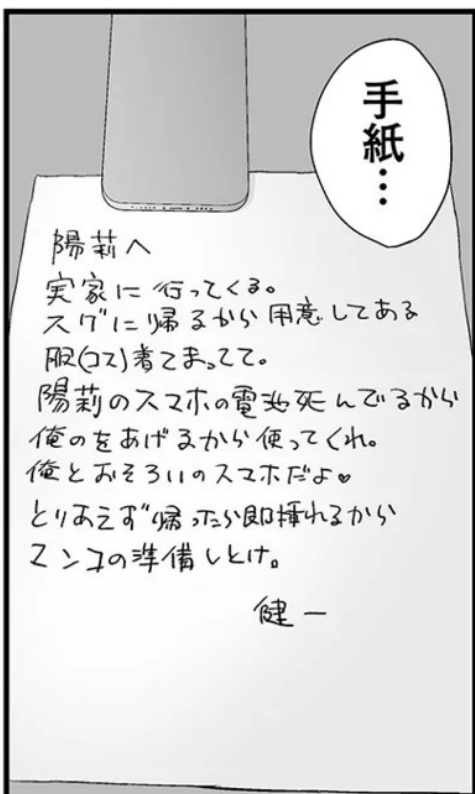 手紙…
陽莉へ
実家に行ってくる。
スグに帰るから用意してある
服(コス)着てまってて。
陽莉のスマホの電池死んでるから
俺のをあげるから使ってくれ。
俺とおそろいのスマホだよ♥
とりあえず帰ったら即挿れるから
マンコの準備しとけ。
健一